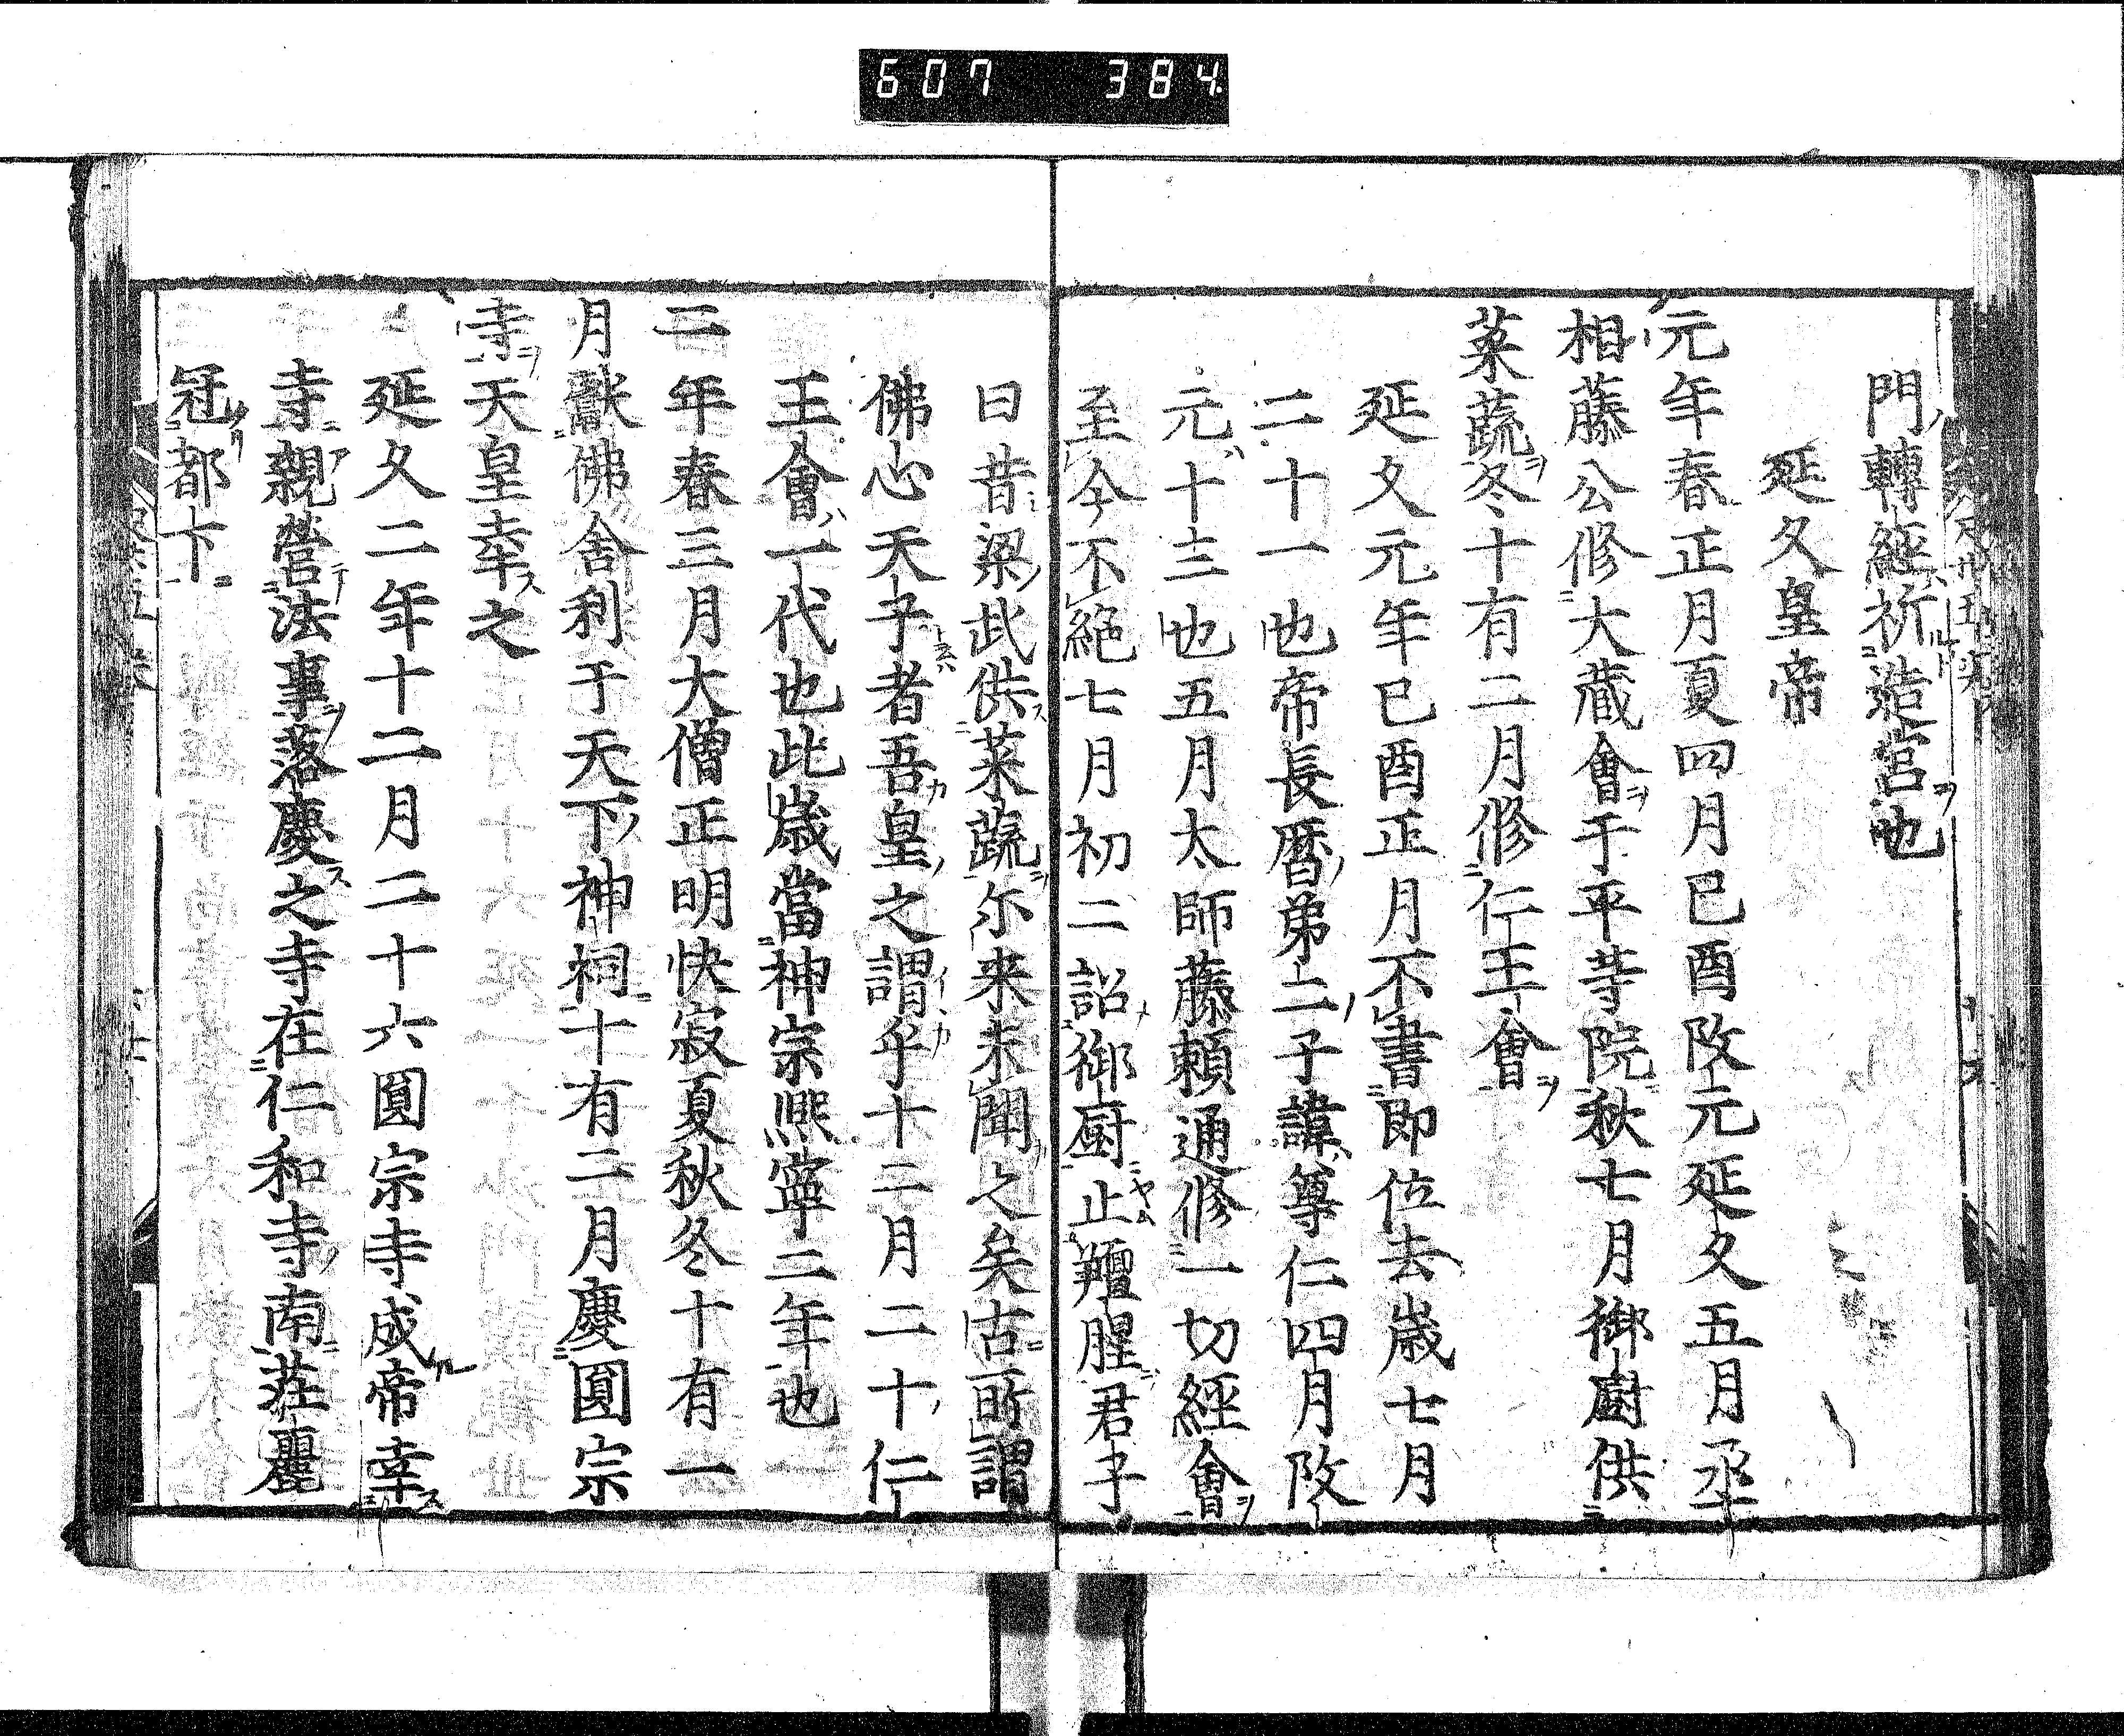 607 384
門轉經祈造宮也
延久皇帝
元年春正月夏四月已酉改元延久五月丞
相藤公修大蔵會于平等院秋七月御廚供
菜蔬冬十有二月修仁王會
延久元年已酉正月不書即位去歳七月
二十一也帝長暦弟二子諱尊仁四月改
元十三也五月太師藤頼通修一切經會
至今不絶七月初二詔御廚止羶腥君子
曰昔梁武供菜蔬尓来未聞之矣古所謂
佛心天子者吾皇之謂乎十二月二十仁
王會一代也此歳當神宗熙寧二年也
二年春三月大僧正明快寂夏秋冬十有一
月獻佛舎利于天下神祠十有二月慶圓宗
寺天皇幸之
延久二年十二月二十六圓宗寺成帝幸
寺親營法事落慶之寺在仁和寺南莊麗
冠都下